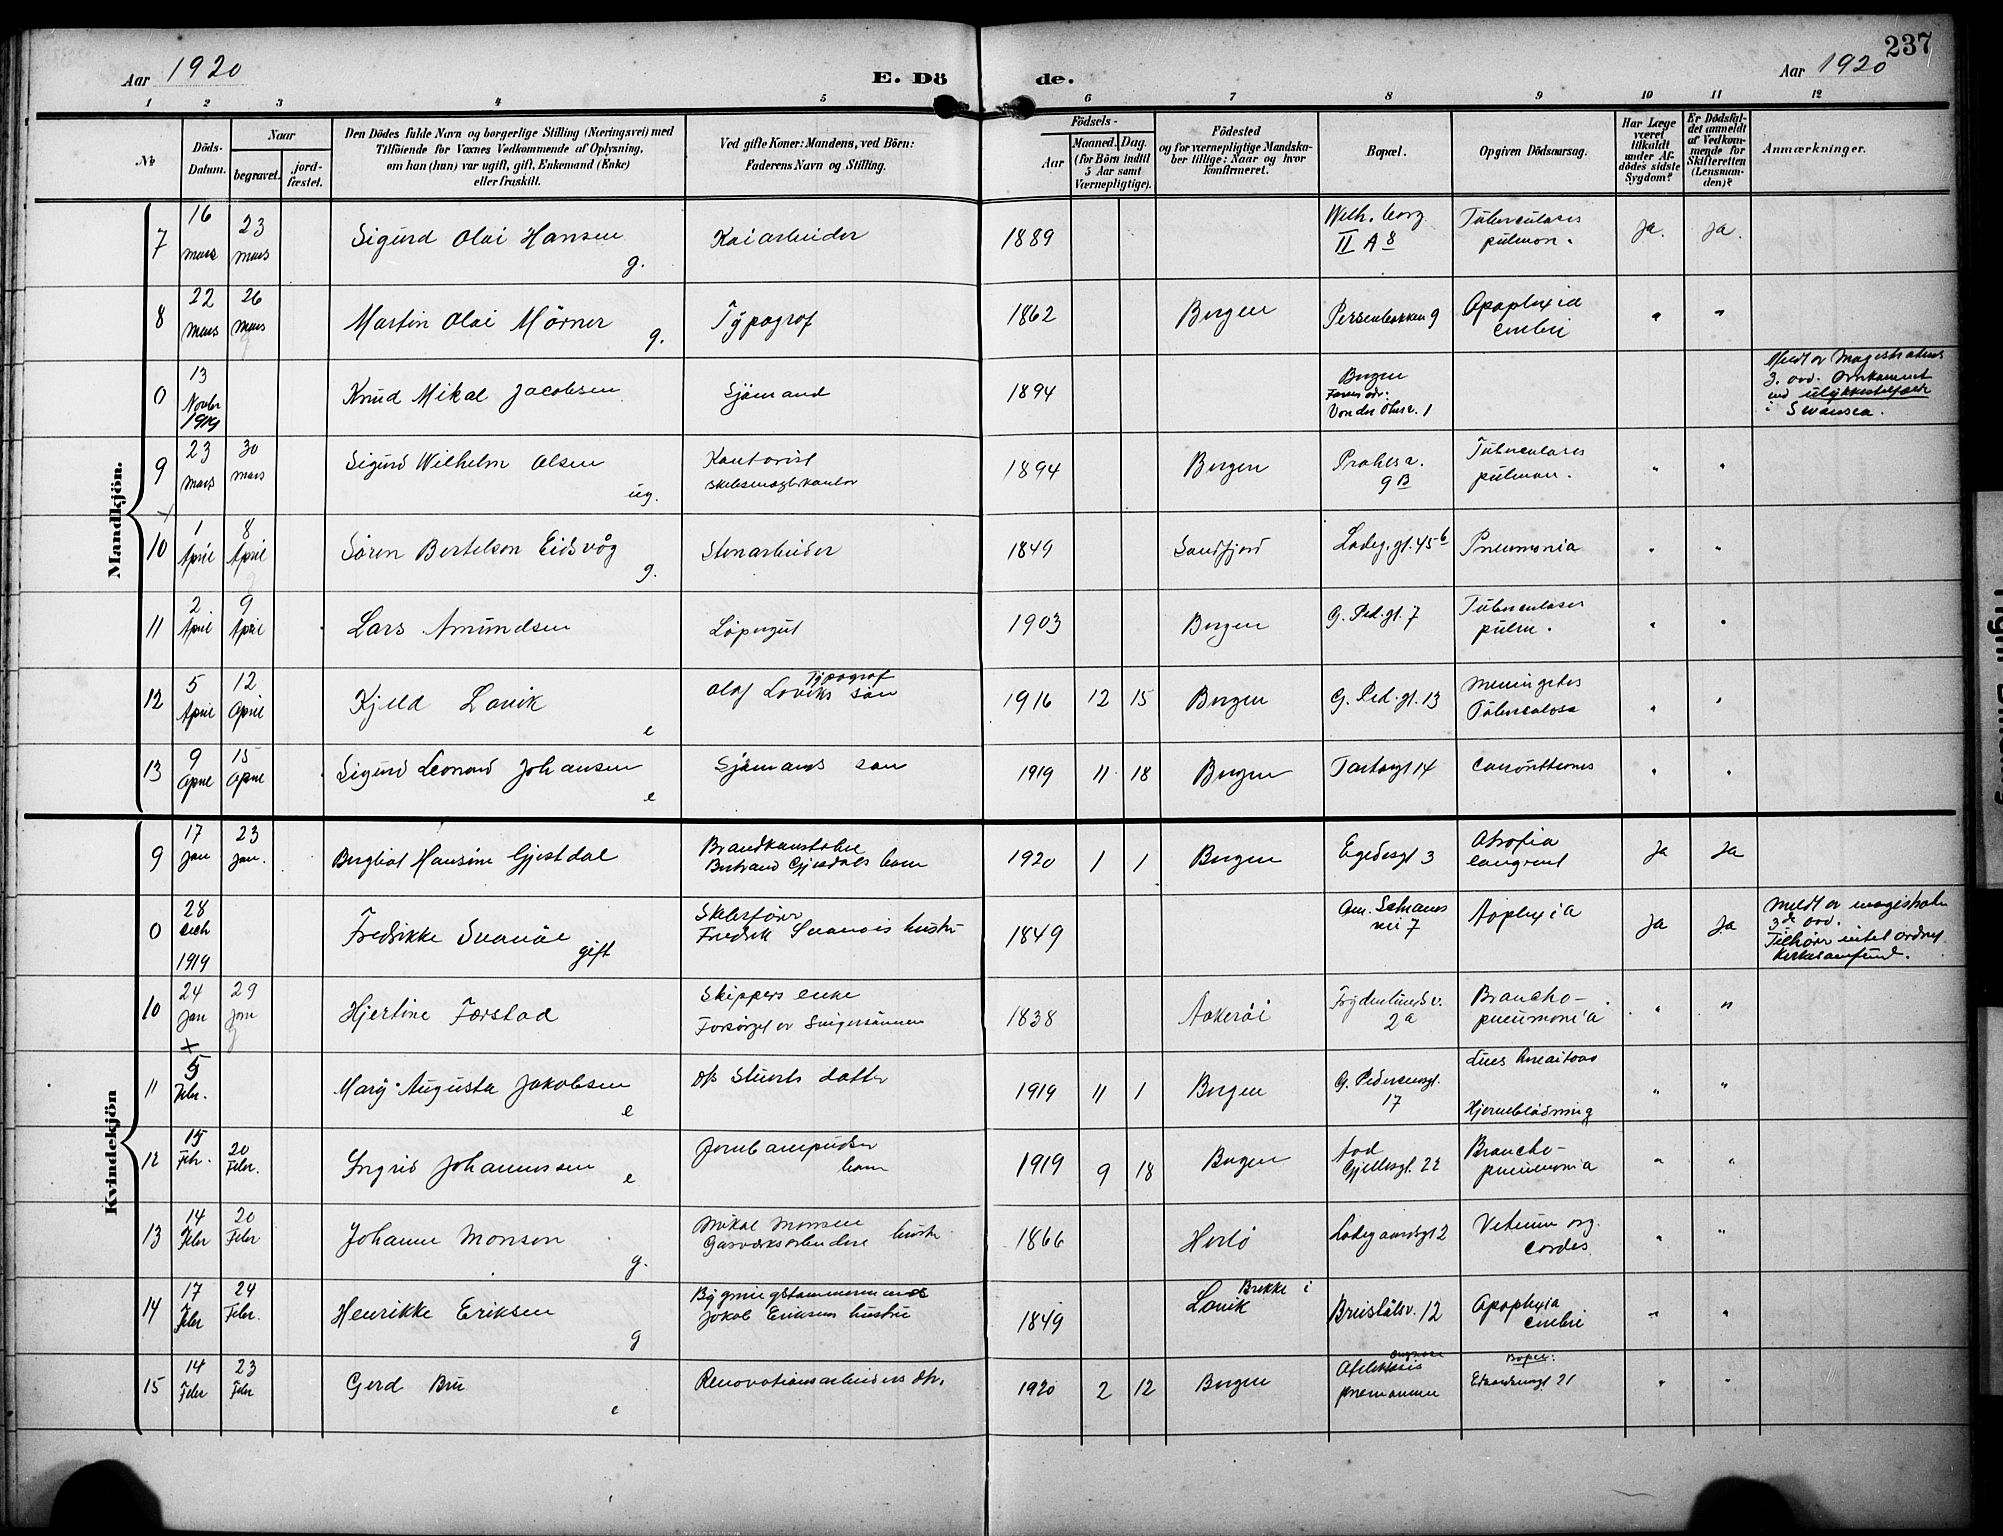 237
Aar 1920 E. Dö de. Aar 1920
1 2 3 4 5 6 7 8 9 10 11 12
No
Döds-Datum.
Naar
begravet.
jord-fæstet.
Den Dödes fulde Navn og borgerlige Stilling (Næringsvei) med
Tilföiende for Voxnes Vedkommende af Oplysning,
om han (hun) var ugift, gift, Enkemand (Enke)
eller fraskilt.
Ved gifte Koner: Mandens, ved Börn:
Faderens Navn og Stilling.
Födsels-
Aar
Maaned. Dag.
(for Börn indtil
5 Aar samt
Værnepligtige).
Födested
og for værnepligtige Mandska-
ber tillige: Naar og hvor
konfirmeret.
Bopæl.
Opgiven Dödsaarsag.
Har Læge
været
tilkaldt
under Af-
dödes sidste
Sygdom?
Er Dödsfal-
det anmeldt
af Vedkom-
mende for
Skifteretten
(Lensman-
den)?
Anmærkninger.
Mandkjön.
7 16 mars 23 mars Sigurd Olai Hansen g. Kaiarbeider 1889 II A 8 Tuberculoses pulmon. Ja. Ja.
8 22 mars 26 mars Martin Olai Mörner g. Typograf 1862 Bergen Persenbakken 9 Apoplexia cerebri " "
0 13 Novbr 1919 Knud Mikal Jacobsen Sjömand 1894 Bergen 1 Meldt av Magistratens 3. avd. Omkommet ved ulykkestilfælde i Swansea.
9 23 mars 30 mars Sigurd Wilhelm Olsen ug. Kontorist 1894 Bergen 9 B Tuberculoses pulmon. " "
10 1 April 8 April Sören Bertelsen Eidsvåg g. Stenarbeider 1849 Sandfjord Ladeg. gt. 45 b Pneumonia " "
11 2 April 9 April Lars Amundsen Löpergut 1903 Bergen G. Ped. gt. 7 Tuberculoses pulm. " "
12 5 April 12 April Kjeld Lavik e Typograf Olaf Laviks sön 1916 12 15 Bergen G. Ped. gt. 13 Meningites Tuberculosa " "
13 9 April 15 April Sigurd Leonard Johansen e Sjömands sön 1919 11 18 Bergen 14 " "
Kvindekjön
9 17 Jan 23 Jan. Bergliot Hansine Gjestdal Brandkonstabel Bertrand Gjesdals barn 1920 1 1 Bergen Egedesgt 3 Atrofia congenit Ja Ja
0 28 1919 Fredrikke Svanöe gift Skibsförer Fredrik Svanöis hustr 1849 7 Apoplexia Ja Ja Meldt av magistraten 3de avd. Tilhörer intet ordnet Kirkesamfund.
10 24 Jan 29 Jan Hjertine Færstad Skippers enke Forsörget av Svigersönnen 1838 Askeröi Frydenlunds v. 2a Broncho-pneumonia " "
11 5 Febr. Mary Augusta Jakobsen e d/s Stuerts datter 1919 11 1 Bergen G. Pedersensgt. 17 Hjerneblödning " "
12 15 Feb. 20 Febr. Ingrid Johannessen e barn 1919 9 18 Bergen Aad Gjellesgt. 22 Broncho-pneumonia " "
13 14 Febr 20 Febr Johanne Monsen g. Mikal Monsen Gasværksarbeiders hustr 1866 Herlö Ladegaardsgt 2 Vitium org. cordis " "
14 17 Febr 24 Febr. Henrikke Eriksen g Bygningstömmermands Jakob Eriksens hustru 1849 Brekke i Lavik 12 Apoplexia cerebri " "
15 14 Febr 23 Febr Gerd Bru e Renovationsarbeiders dtr. 1920 2 12 Bergen Bopæl: 21 " "